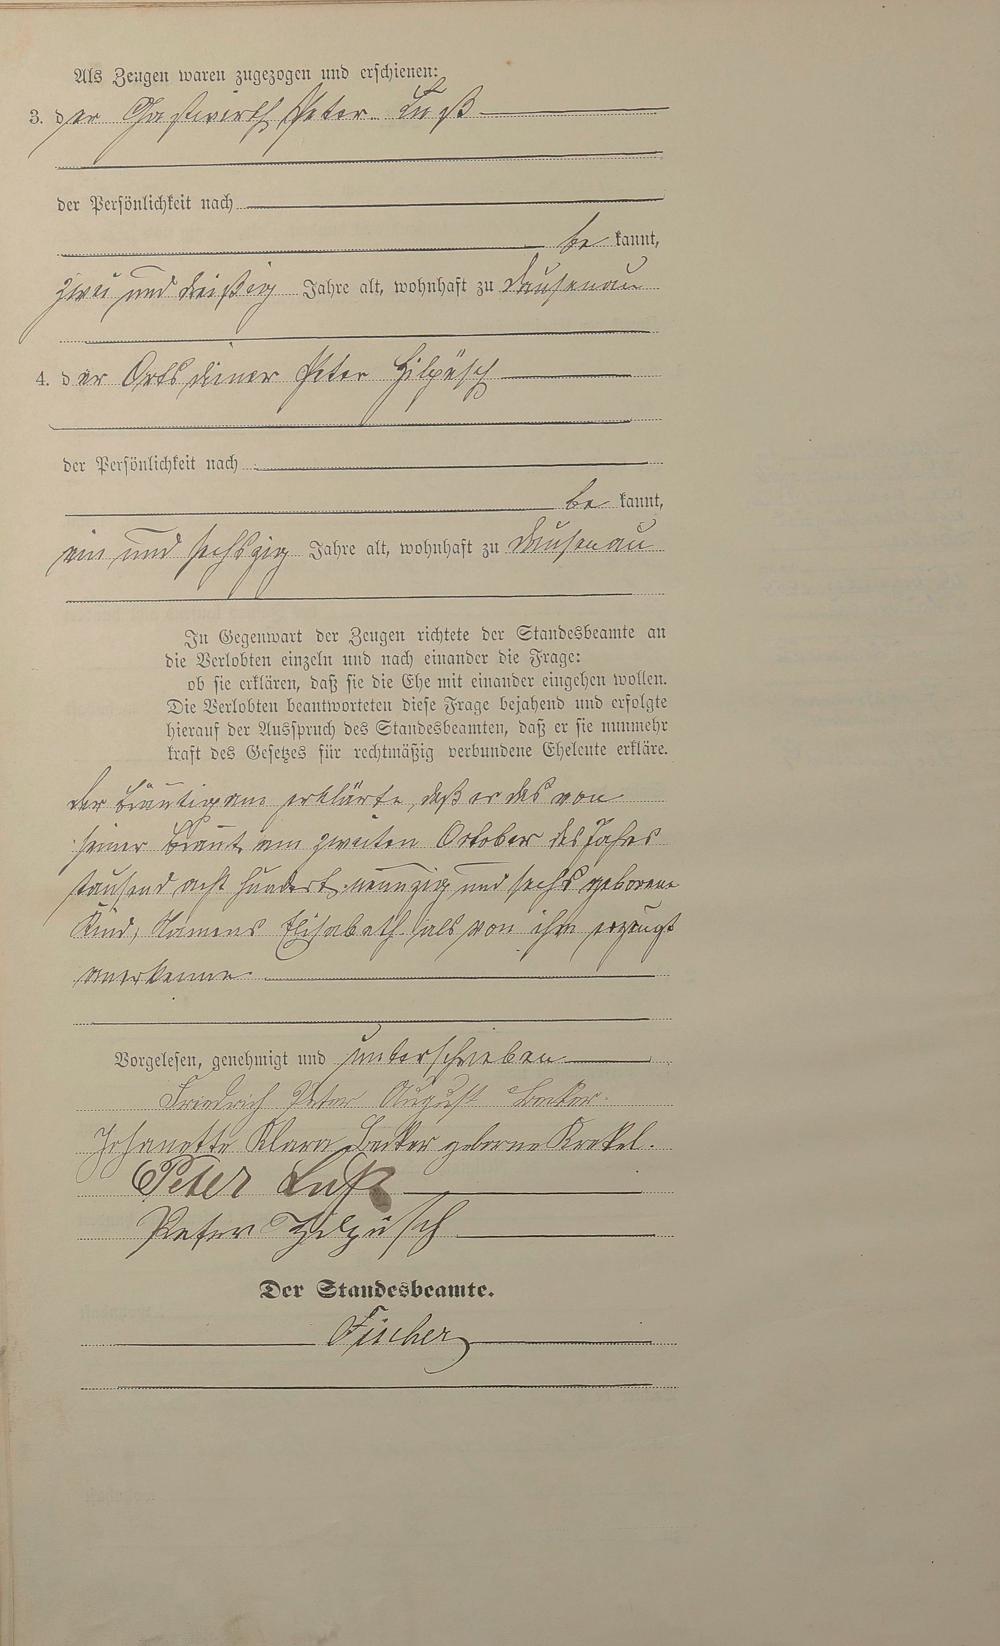 Als Zeugen waren zugezogen und erschienen:
3. der Gastwirth Peter Luß
der Persönlichkeit nach
be kannt,
zwei und dreißig Jahre alt, wohnhaft zu Dausenau
4. der Ortsdiener Peter Hilpüsch
der Persönlichkeit nach
be kannt,
ein und sechszig Jahre alt, wohnhaft zu Dausenau
In Gegenwart der Zeugen richtete der Standesbeamte an
die Verlobten einzeln und nach einander die Frage:
ob sie erklären, daß sie die Ehe mit einander eingehen wollen.
Die Verlobten beantworteten diese Frage bejahend und erfolgte
hierauf der Ausspruch des Standesbeamten, daß er sie nunmehr
kraft des Gesetzes für rechtmäßig verbundene Eheleute erkläre.
Der Bräutigam erklärte, daß er das von
seiner Braut am zweiten Oktober des Jahres
tausend acht hundert neunzig und sechs geborene
Kind, Namens Elisabeth als von ihm erzeugt
anerkenne
Vorgelesen, genehmigt und unterschrieben
Friedrich Peter August Becker.
Johanette Klara Becker geborne Krekel.
Peter Luß
Peter Hilpüsch
Der Standesbeamte.
Fischer